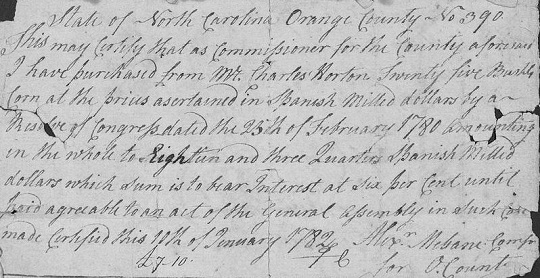 State of North Carolina Orange County No 390
This may Certify that as Commissioner for the County aforesaid
I have purchased from Mr. Charles Horton Twenty five Bushls
Corn at the prices asertained in Spanish Milled dollars by a
Resolve of Congress dated the 25th of February 1780 Amounting
in the whole to Eighteen and three Quarters Spanish Milled
dollars which Sum is to bear Interest at Six per Cent until
paid agreeable to an act of the General Assembly in Such Case
made Certified this 11th of January 1782
Alexr. Mebane Comsr
£ 7. 10. for O. County